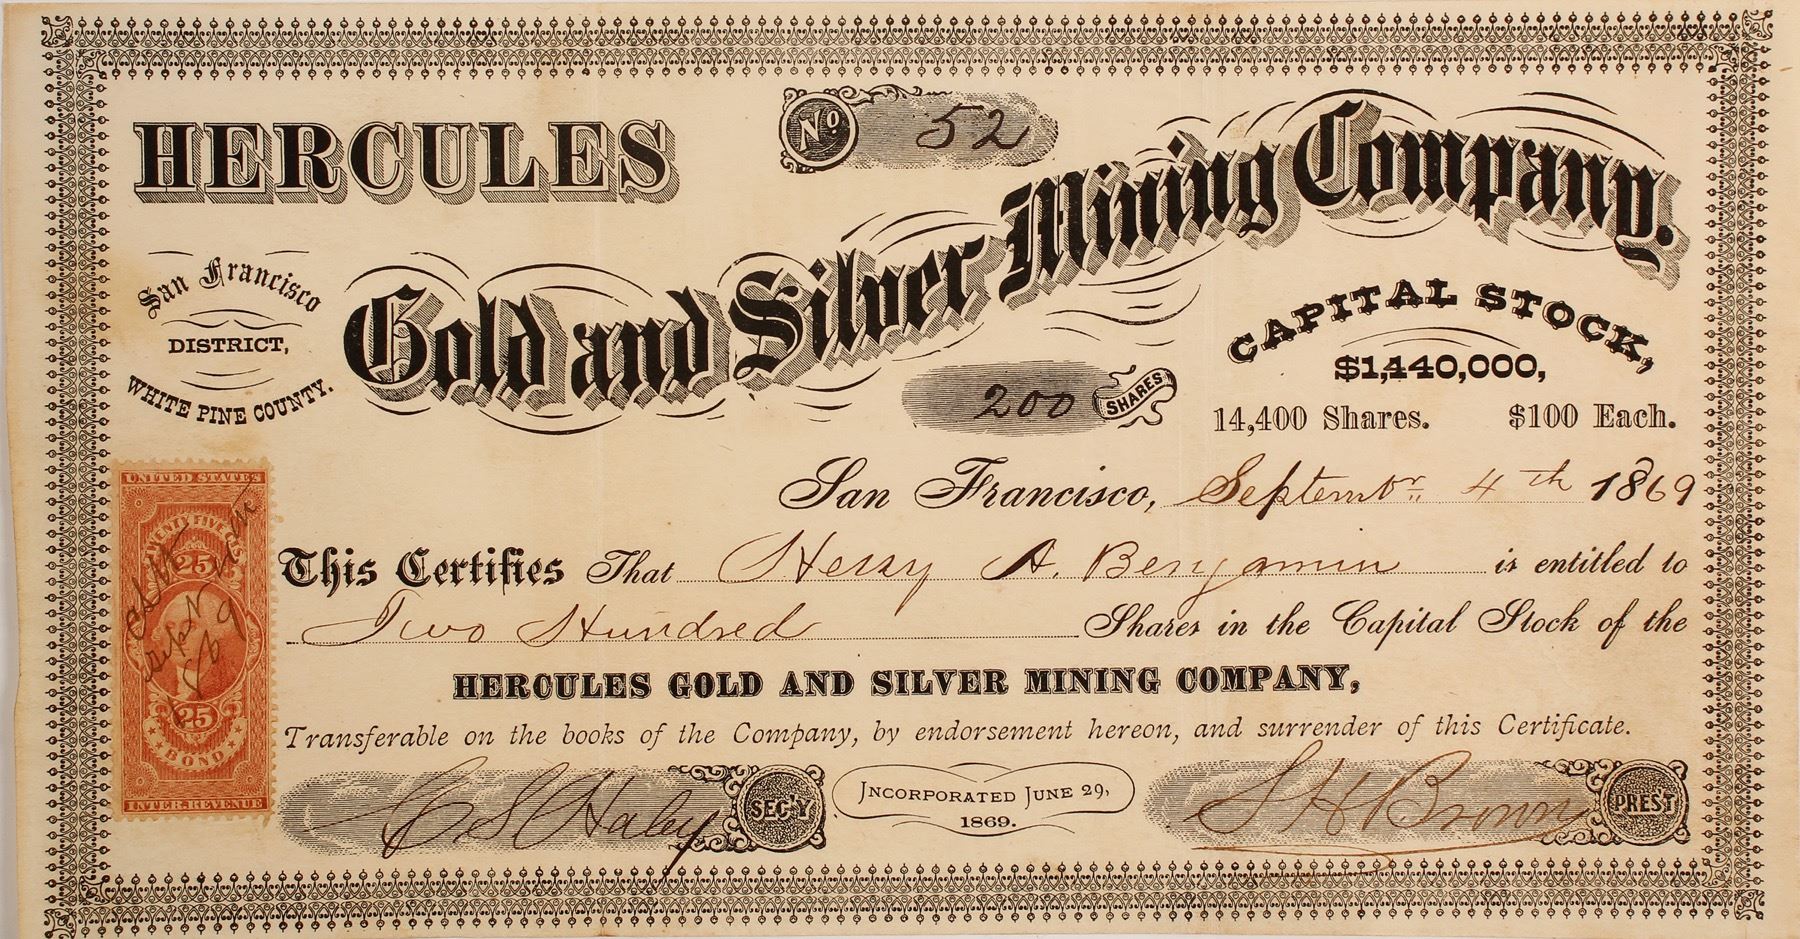 HERCULES
No. 52
Gold and Silver Mining Company.
San Francisco
DISTRICT,
WHITE PINE COUNTY.
CAPITAL STOCK,
$1,440,000,
200 SHARES
14,400 Shares. $100 Each.
San Francisco, Septembr. 4th 1869
This Certifies That Henry A. Benjamin is entitled to
Two Hundred Shares in the Capital Stock of the
HERCULES GOLD AND SILVER MINING COMPANY,
Transferable on the books of the Company, by endorsement hereon, and surrender of this Certificate.
C S Haley SEC'Y
INCORPORATED JUNE 29,
1869.
S H Brown PREST
UNITED STATES
TWENTY FIVE CENTS
25
25
BOND
INTER. REVENUE